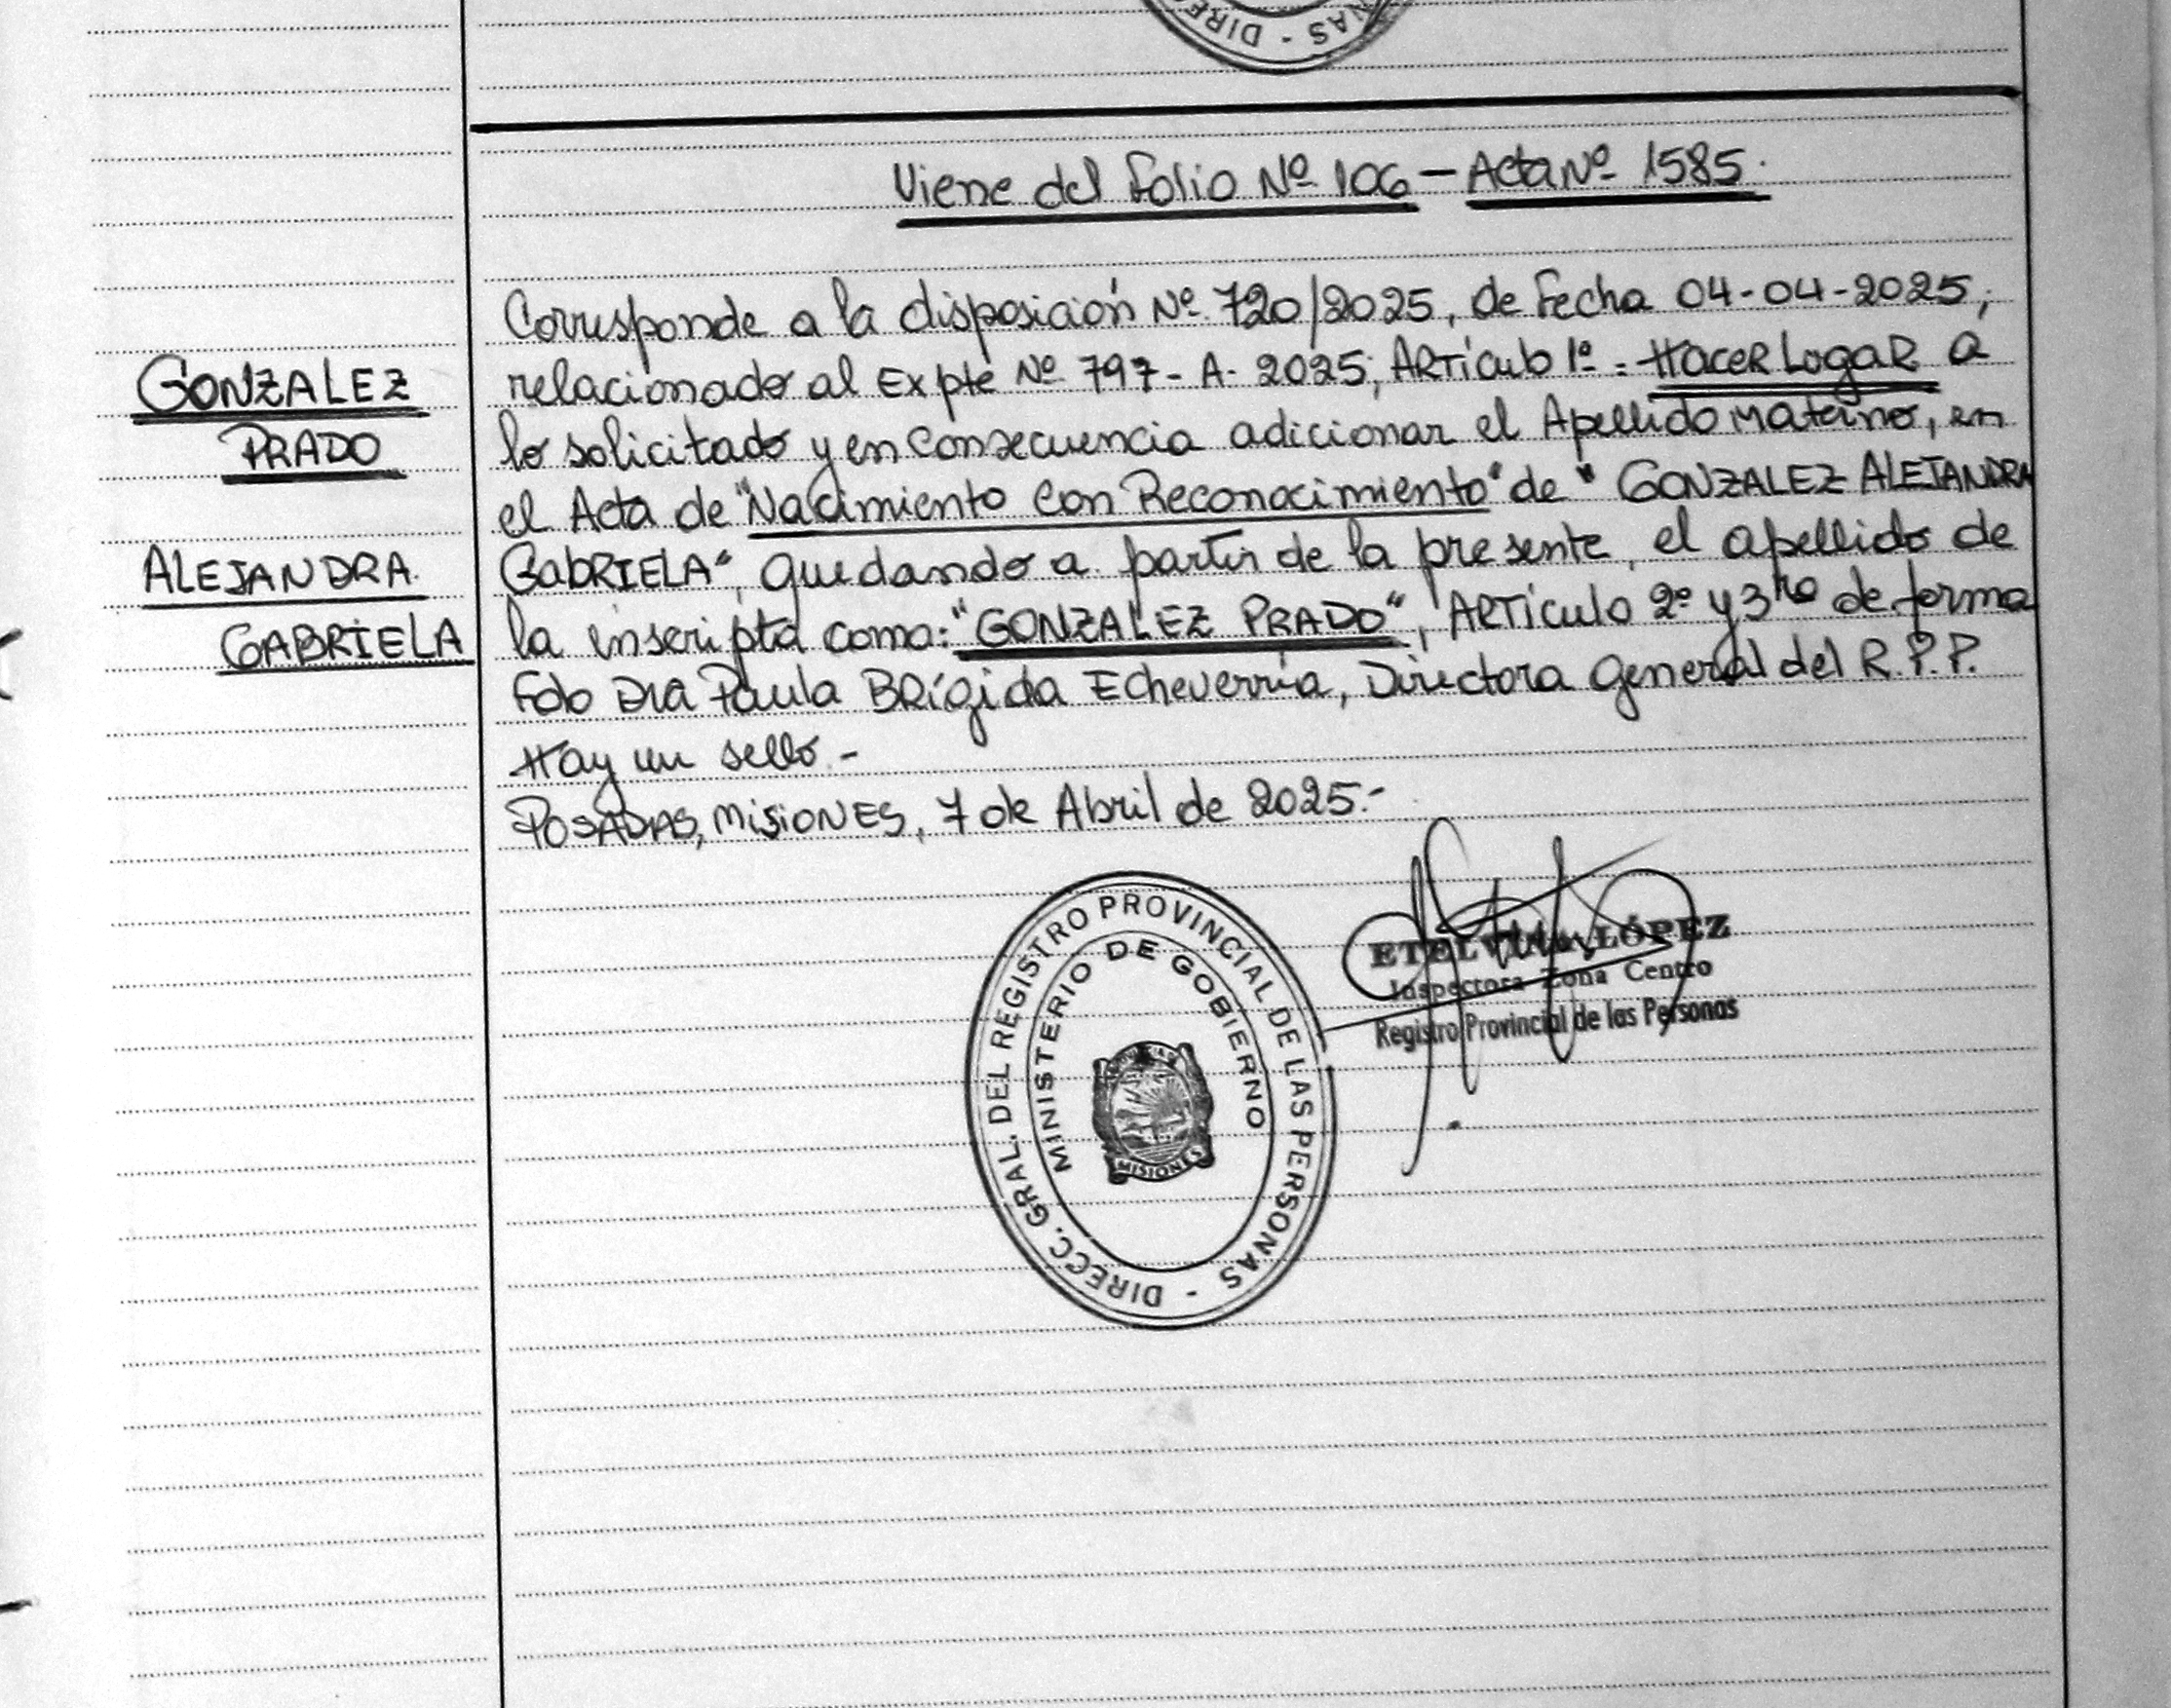 NAS - DIREC
Viene del Folio Nº 106 - Acta Nº 1585.
Corresponde a la disposición Nº 720/2025, de Fecha 04-04-2025;
relacionado al Expte Nº 797- A- 2025; ARTículo 1º = HACER LugaR a
lo solicitado y en Consecuencia adicionar el Apellido Materno, en
el Acta de "Nacimiento Con Reconocimiento" de " GONZALEZ ALEJANDRA
GabRIELA", quedando a partir de la presente, el apellido de
la inscripta como: "GONZALEZ PRADO", ARTículo 2º y 3ro de forma
Fdo DRA Paula BRígida Echeverría, Directora General del R.P.P.
Hay un sello.-
POSADAS, MisiONES, 7 de Abril de 2025.-
GONZALEZ
PRADO
ALEJANDRA
GABRIELA
DIRECC. GRAL. DEL REGISTRO PROVINCIAL DE LAS PERSONAS -
MINISTERIO DE GOBIERNO
MISIONES
LÓPEZ
Inspectora Zona Centro
Registro Provincial de las Personas